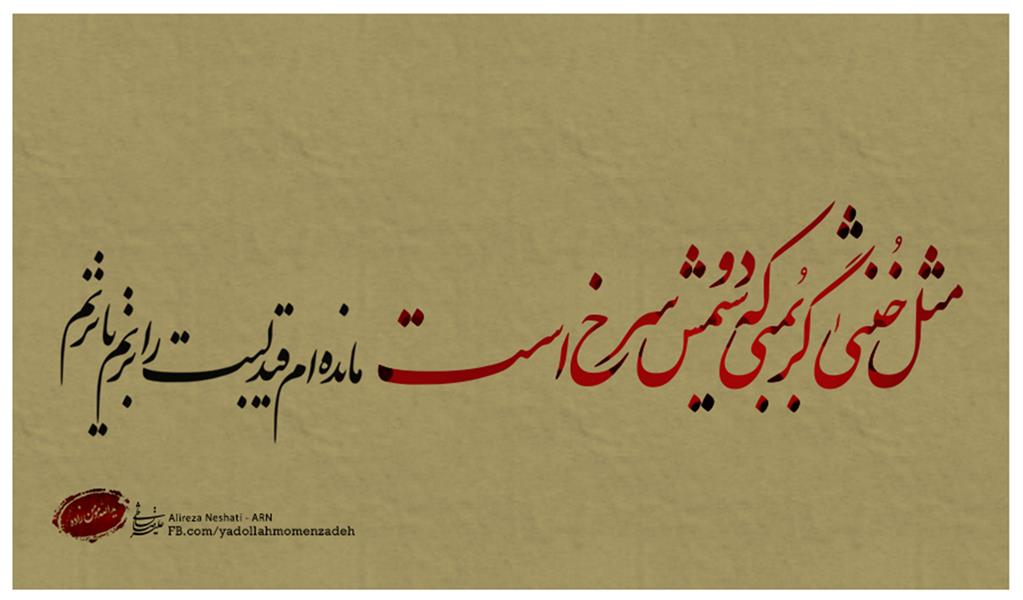 مثل خُنثیٰ گر بُمبی که دو سیمش سرخ است مانده ام قید لبت را بزنم یا نزنم
یدالله مؤمن زاده
Alireza Neshati - ARN
FB.com/yadollahmomenzadeh